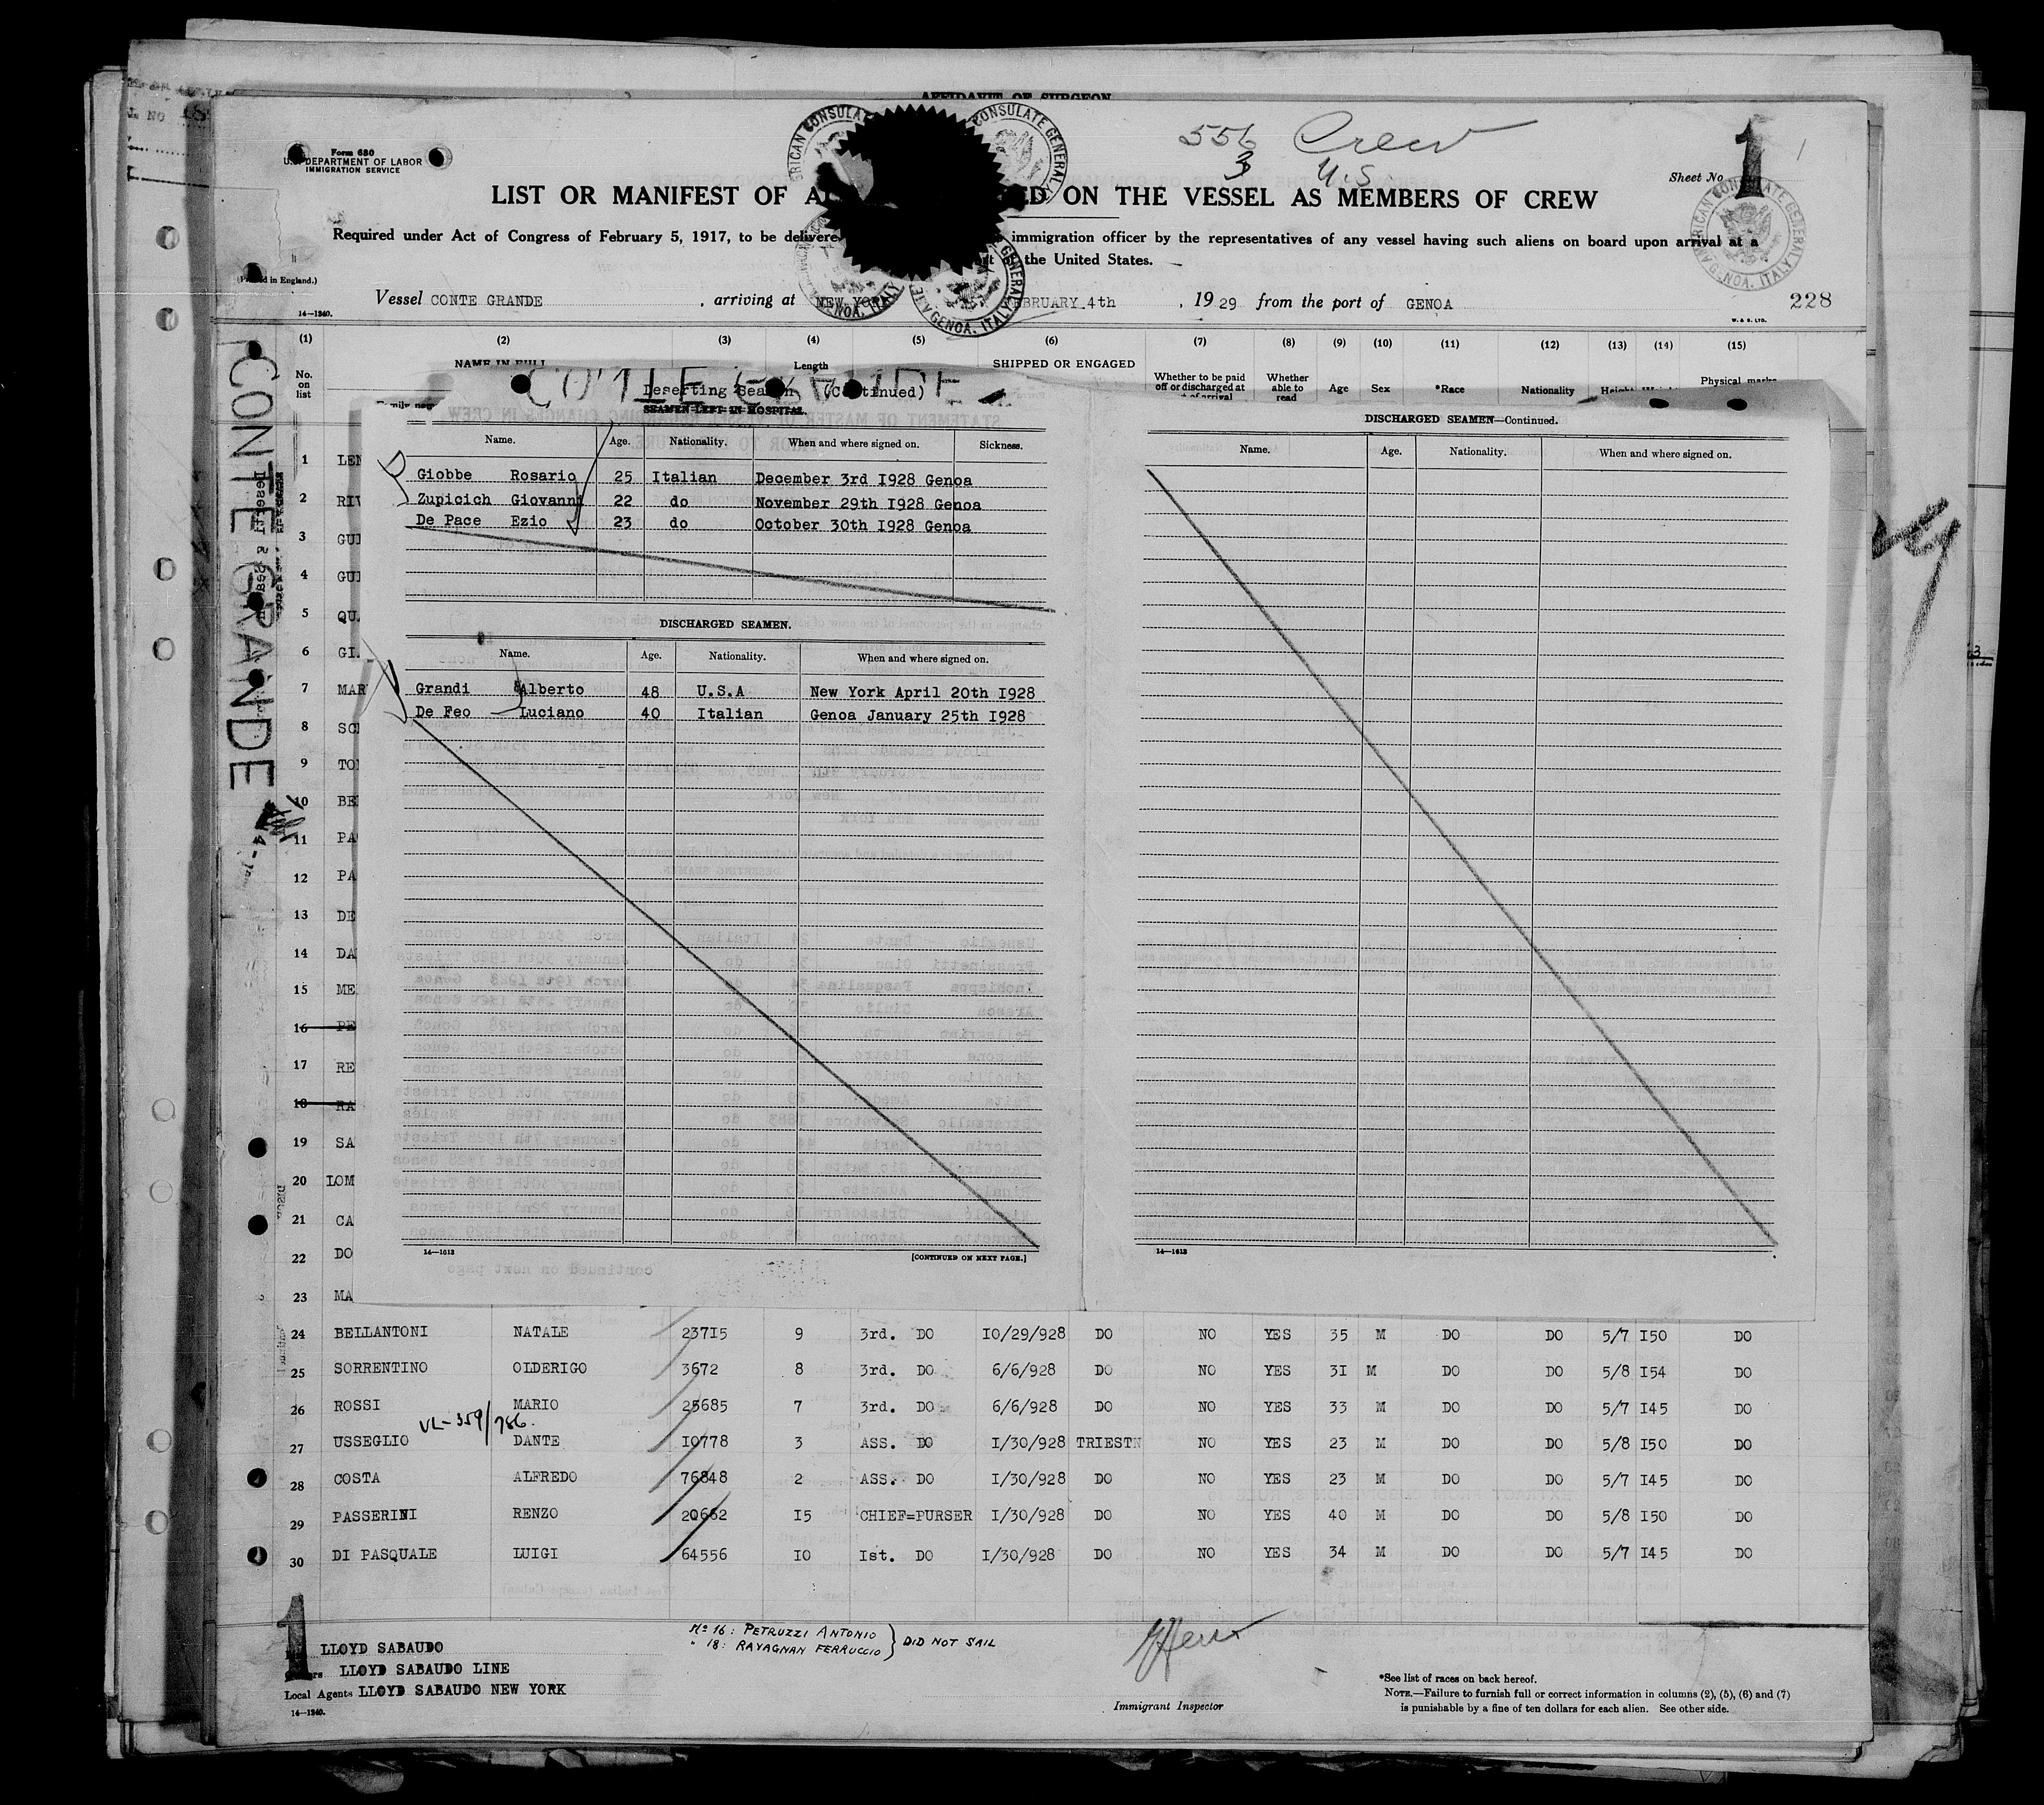 AFFIDAVIT OF SURGEON
Form 680
U.S. DEPARTMENT OF LABOR
IMMIGRATION SERVICE
556 Crew
3 U.S.
Sheet No 1
LIST OR MANIFEST OF ON THE VESSEL AS MEMBERS OF CREW
Required under Act of Congress of February 5, 1917, to be immigration officer by the representatives of any vessel having such aliens on board upon arrival at a
the United States.
AMERICAN CONSULATE GENERAL
GENOA, ITALY
(Printed in England.)
Vessel CONTE GRANDE , arriving at NEW YORK FEBRUARY 4th , 1929 from the port of GENOA
228
14—1240.
W. & S. LTD.
(1) (2) (3) (4) (5) (6) (7) (8) (9) (10) (11) (12) (13) (14) (15)
No. on list
NAME IN FULL
Length
SHIPPED OR ENGAGED
Whether to be paid off or discharged at
Whether able to read
Age Sex *Race Nationality Height Physical marks
CONTE GRANDE
Deserting Seamen (Continued)
SEAMEN LEFT IN HOSPITAL.
Name. Age. Nationality. When and where signed on. Sickness.
Giobbe Rosario 25 Italian December 3rd I928 Genoa
Zupicich Giovanni 22 do November 29th I928 Genoa
De Pace Ezio 23 do October 30th I928 Genoa
DISCHARGED SEAMEN.
Name. Age. Nationality. When and where signed on.
Grandi Alberto 48 U.S.A New York April 20th I928
De Feo Luciano 40 Italian Genoa January 25th I928
14—1613
[CONTINUED ON NEXT PAGE.]
DISCHARGED SEAMEN—Continued.
Name. Age. Nationality. When and where signed on.
14—1613
CONTE GRANDE
1 LEN
2 RIV
3 GUI
4 GUI
5 QU
6 GI
7 MAR
8 SC
9 TO
10 BE
11 PA
12 PA
13 DE
14 DA
15 ME
16 PE
17 RE
18 RA
19 SA
20 LOM
21 CA
22 DO
23 MA
24 BELLANTONI NATALE 237I5 9 3rd. DO I0/29/928 DO NO YES 35 M DO DO 5/7 I50 DO
25 SORRENTINO OLDERIGO 3672 8 3rd. DO 6/6/928 DO NO YES 3I M DO DO 5/8 I54 DO
26 ROSSI MARIO 25685 7 3rd. DO 6/6/928 DO NO YES 33 M DO DO 5/7 I45 DO
VL-359/786.
27 USSEGLIO DANTE I0778 3 ASS. DO I/30/928 TRIESTN NO YES 23 M DO DO 5/8 I50 DO
28 COSTA ALFREDO 76848 2 ASS. DO I/30/928 DO NO YES 23 M DO DO 5/7 I45 DO
29 PASSERINI RENZO 20662 I5 CHIEF=PURSER I/30/928 DO NO YES 40 M DO DO 5/8 I50 DO
30 DI PASQUALE LUIGI 64556 IO Ist. DO I/30/928 DO NO YES 34 M DO DO 5/7 I45 DO
1
LLOYD SABAUDO
Owners LLOYD SABAUDO LINE
Local Agents LLOYD SABAUDO NEW YORK
14—1240.
No 16: PETRUZZI ANTONIO
" 18: RAVAGNAN FERRUCCIO } DID NOT SAIL
Immigrant Inspector
*See list of races on back hereof.
NOTE.—Failure to furnish full or correct information in columns (2), (5), (6) and (7)
is punishable by a fine of ten dollars for each alien. See other side.